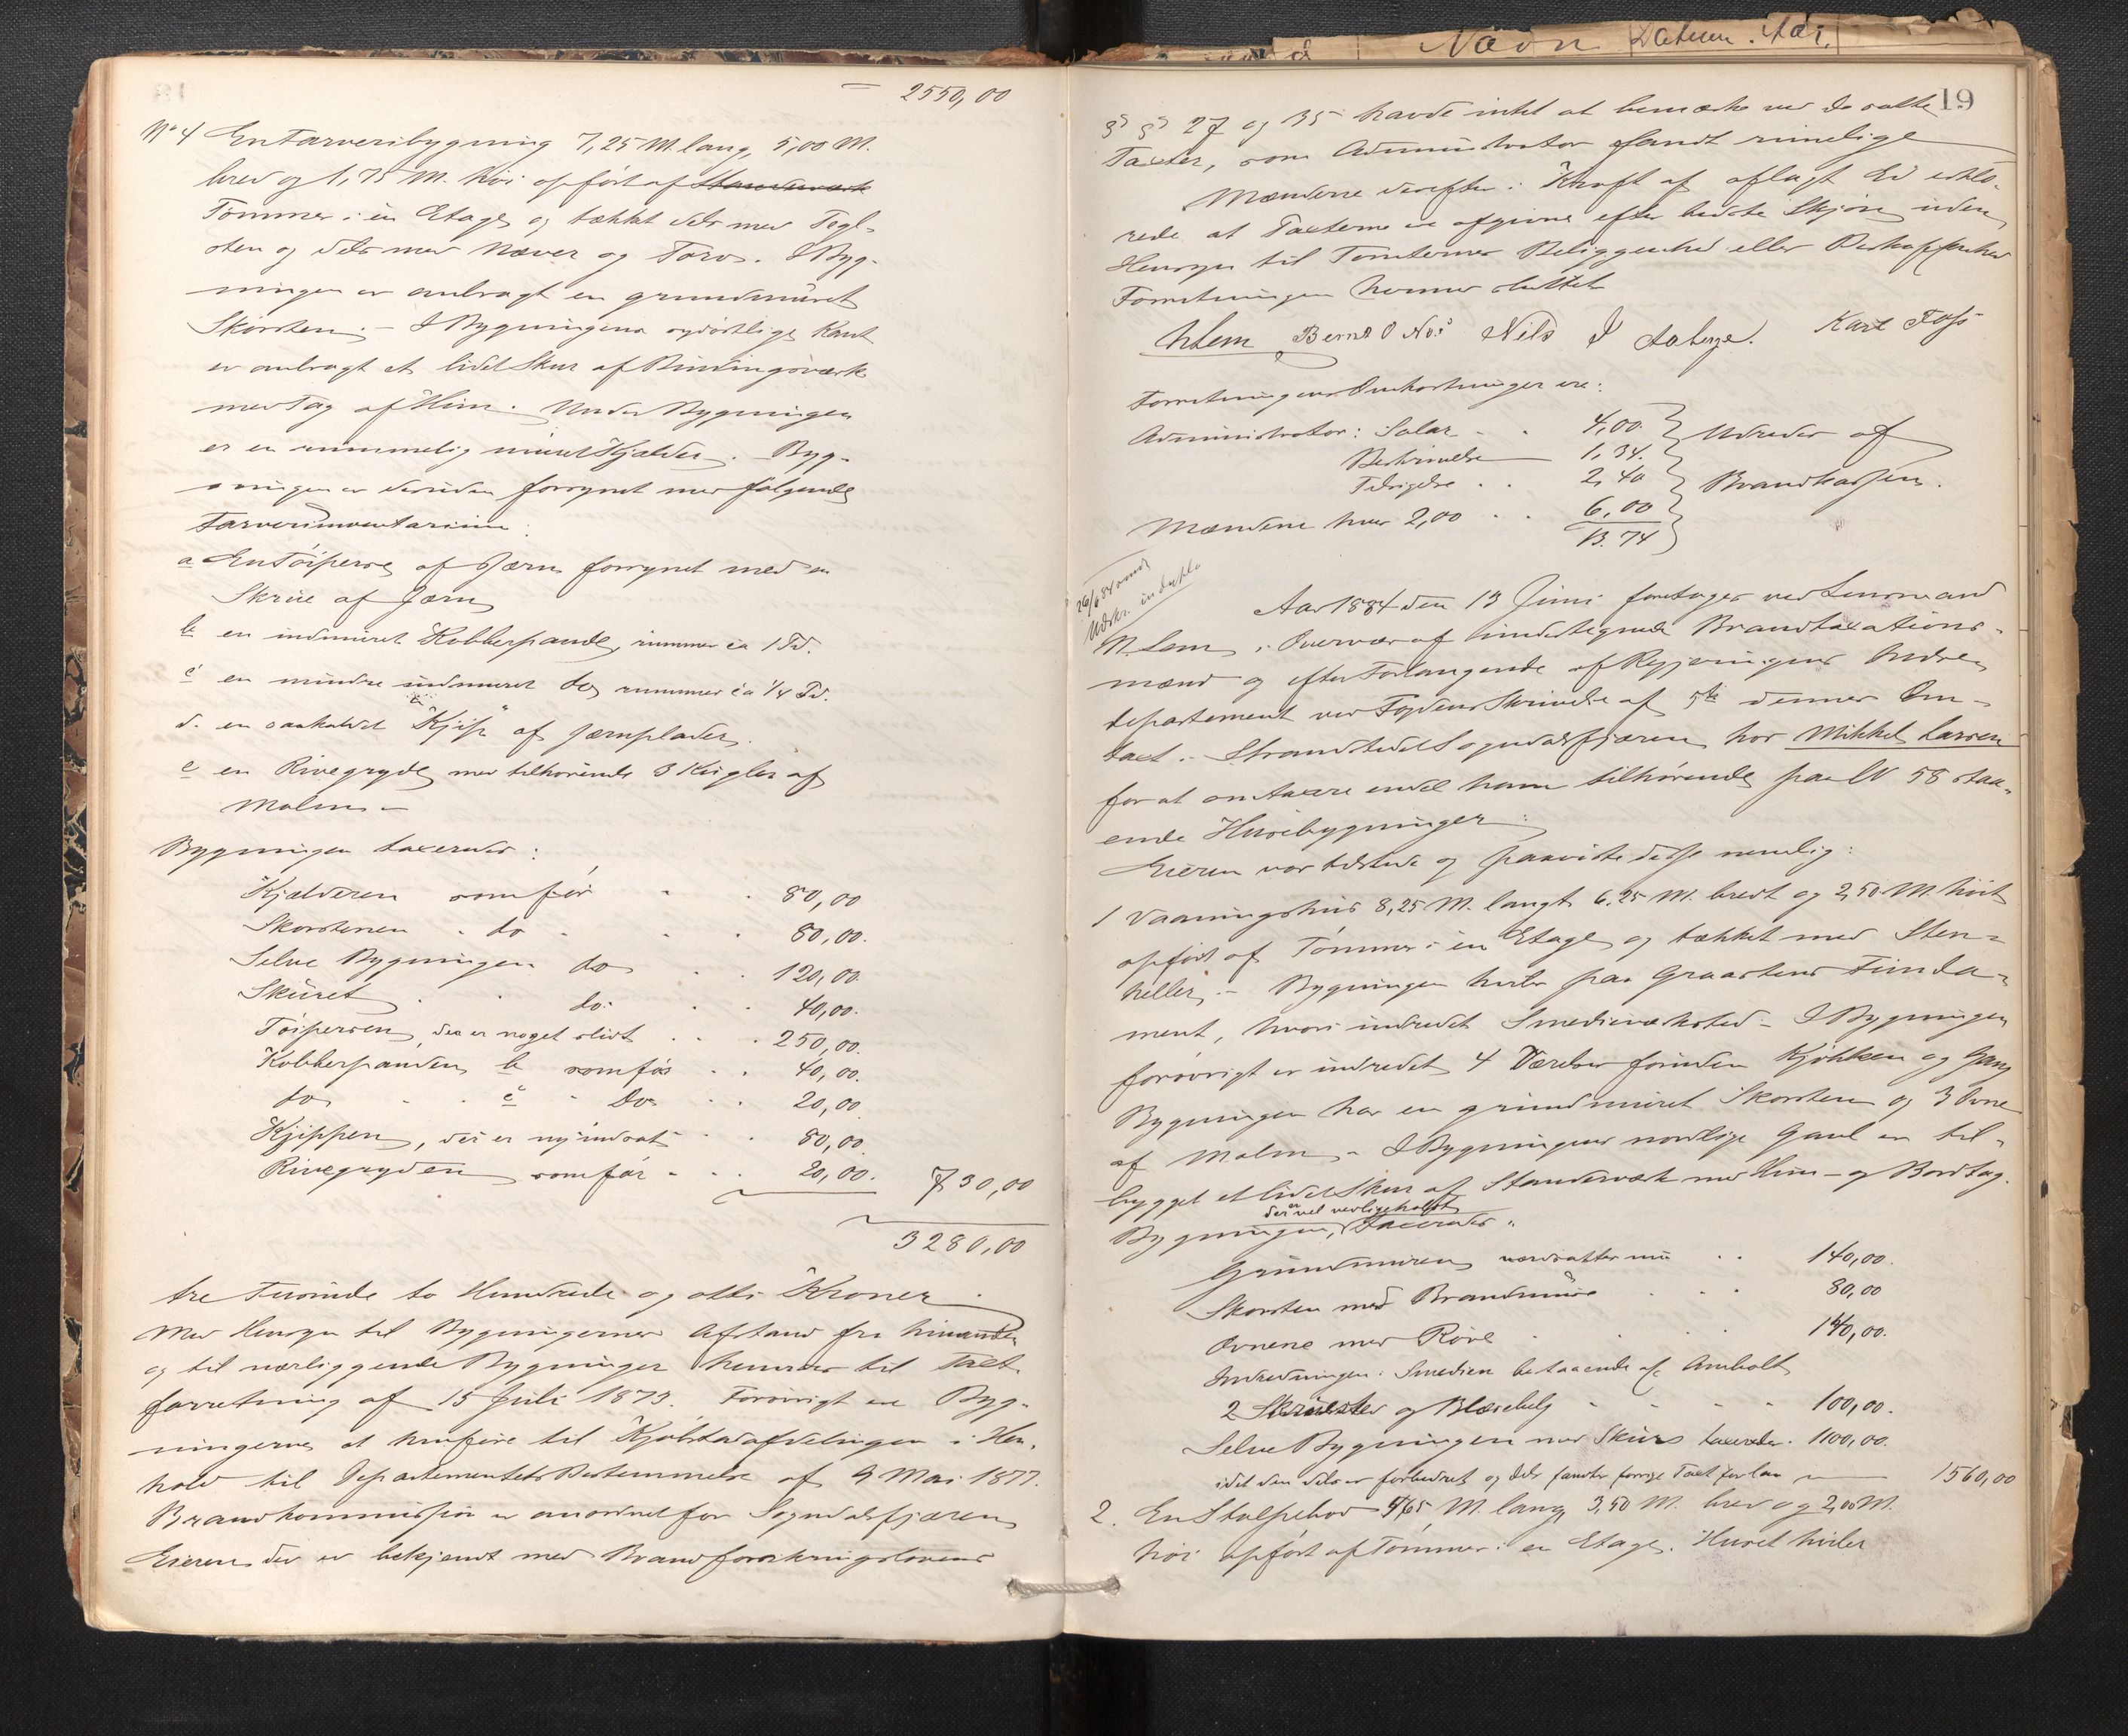 2550,00
No 4 En Farveribygning 7,25 M. lang, 5,00 M.
bred og 1,75 M. høi opført af Standerværk
Tømmer i en Etage og tækket dels med Tegl-
sten og dels med Næver og Torv. I Byg-
ningen er anbragt en grundmuret
Skorsten. – I Bygningens sydøstlige Kant
er anbragt et lidet Skur af Bindingsværk
med Tag af Him. Under Bygningen
er en rummelig muret Kjælder. Byg-
ningen er desuden forsynet med følgende
Farveriinventarium:
a En Tøiperse af Jærn forsynet med en
Skrue af Jærn
b en indmuret Kobberpande, rummer ca 1 Td.
c en mindre indmuret do, rummer ca 1/4 Td.
d. en saakaldet "Kjip" af Jærnplader.
e en Rivegryde med tilhørende 3 Kugler af
Malm –
Bygningen taxeredes:
Kjælderen som før - - 80,00
Skorstenen - do - - - 80,00.
Selve Bygningen do - - 120,00.
Skuret - - do - - 40,00.
Tøipersen, der er noget slidt - - 250,00.
Kobberpanden b som før - - 40,00.
do - - c - Do - - 20,00
Kjippen, der er ny indsat - - 80,00.
Rivegryden som før - - - 20,00. 730,00
3280,00
tre Tusinde to Hundrede og otti Kroner.
Med Hensyn til Bygningernes Afstand fra hinanden
og til nærliggende Bygninger henvises til Taxt-
forretning af 15 Juli 1873. Forøvrigt er Byg-
ningerne at henføre til Kjøbstadafdelingen i Hen-
hold til Departementets Bestemmelse af 9 Mai 1877.
Brandkommission er anordnet for Sogndalsfjæren
Eieren der er bekjendt med Brandforsikringslovens
Navn Datum. Aar.
19
§ § 27 og 35 havde intet at bemærke ved de satte
Taxter, som Administrator fandt rimelige
Mændene derefter i Kraft af aflagt Ed erklæ-
rede at Taxterne er afgivne efter bedste Skjøn uden
Hensyn til Tomternes Beliggenhed eller Beskaffenhed
Forretningen hermed sluttet
NLem Bernt O Nes Nils J Aaberge. Karl Foss
Forretningens Omkostninger ere:
Administrator: Salær - - 4,00. } Udredes af
Beskrivelse 1,34.
Tilsigelse - - 2,40 } Brandkassen.
Mændene hver 2,00 - - 6,00
13.74
26/6 84 sendt
Udskr. in duplo
Aar 1884 den 13 Juni foretages ved Lensmand
N. Lem, i Overvær af undertegnede Brandtaxations-
mænd og efter Forlangende af Regjeringens Indre
departement ved Fogdens Skrivelse af 5te dennes Om-
taxt i Strandstedet Sogndalsfjæren hos Mikkel Larsen
for at omtaxere endel ham tilhørende paa LN 58 staa-
ende Husebygninger:
Eieren var tilstede og paaviste disse nemlig:
1 Vaaningshus 8,25 M. langt 6,25 M. bredt og 2,50 M. høit
opført af Tømmer i en Etage og tækket med Sten-
heller. – Bygningen hviler paa Graastens Funda-
ment, hvori indredet Smedieværksted – I Bygningen
forøvrigt er indredet 4 Værelser foruden Kjøkken og Gang
Bygningen har en grundmuret Skorsten og 3 Ovne
af Malm – I Bygningens nordlige Gavl er til-
bygget et lidet Skur af Standerværk med Him- og Bordtag.
der er vel vedligeholdt
Bygningen, taxeredes:
Grundmuren værdsættes nu - - 140,00.
Skorsten med Brandmure - - - 80,00
Ovnene med Røre - - - - 140,00.
Indredningen i Smedien bestaaende af Ambolt
2 Skruested og Blæsebelg - - - - 100,00.
Selve Bygningen med Skur taxeredes 1100,00.
idet den dels er forbedret og dels fandtes forrige Taxt for lav 1560,00
2. En Stolpebod 4,65 M. lang, 3,50 M. bred og 2,00 M.
høi opført af Tømmer i en Etage. Huset hviler